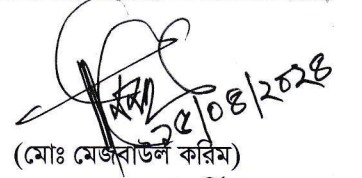 ২৫/০৪/২০২৪
(মোঃ মেজবাউল করিম)